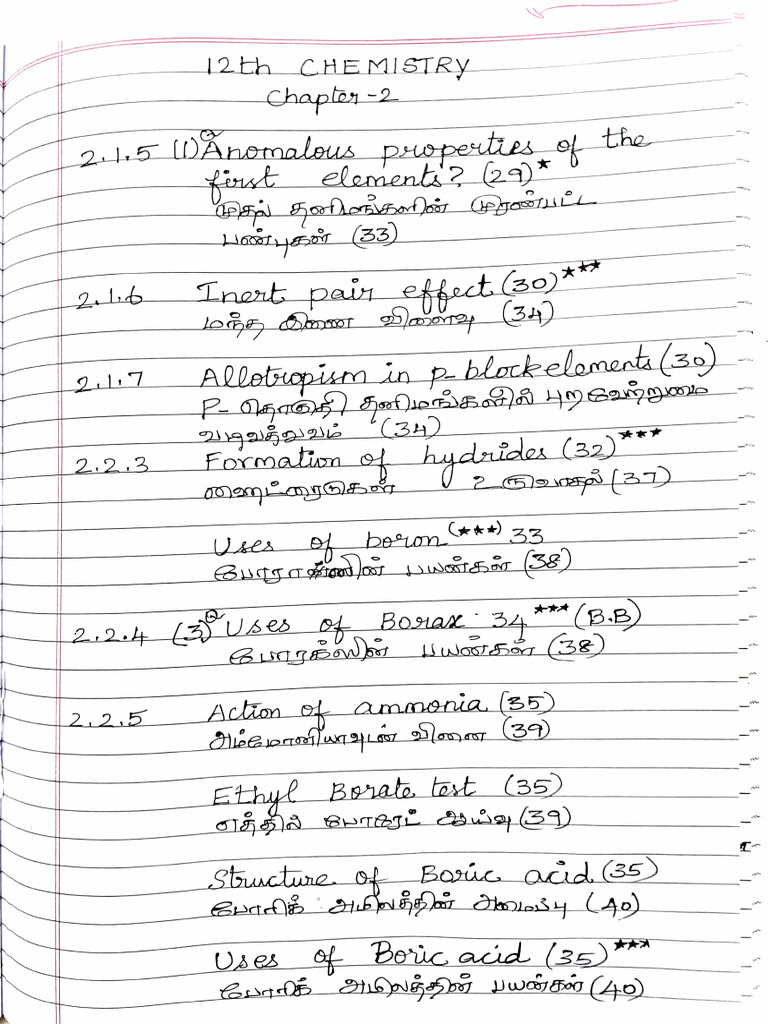 12th CHEMISTRY
Chapter-2
2.1.5 (1) Q Anomalous properties of the
first elements? (29)*
முதல் தனிமங்களின் முரண்பட்ட
பண்புகள் (33)
2.1.6 Inert pair effect (30)***
மந்த இணை விளைவு (34)
2.1.7 Allotropism in p-block elements (30)
P-தொகுதி தனிமங்களில் புறவேற்றுமை
வடிவத்துவம் (34)
2.2.3 Formation of hydrides (32)***
ஹைட்ரைடுகள் உருவாதல் (37)
Uses of boron (***) 33
போரானின் பயன்கள் (38)
2.2.4 (3) Q Uses of Borax 34*** (B.B)
போராக்ஸின் பயன்கள் (38)
2.2.5 Action of ammonia (35)
அம்மோனியாவுடன் வினை (39)
Ethyl Borate test (35)
எத்தில் போரேட் ஆய்வு (39)
Structure of Boric acid (35)
போரிக் அமிலத்தின் அமைப்பு (40)
Uses of Boric acid (35)***
போரிக் அமிலத்தின் பயன்கள் (40)